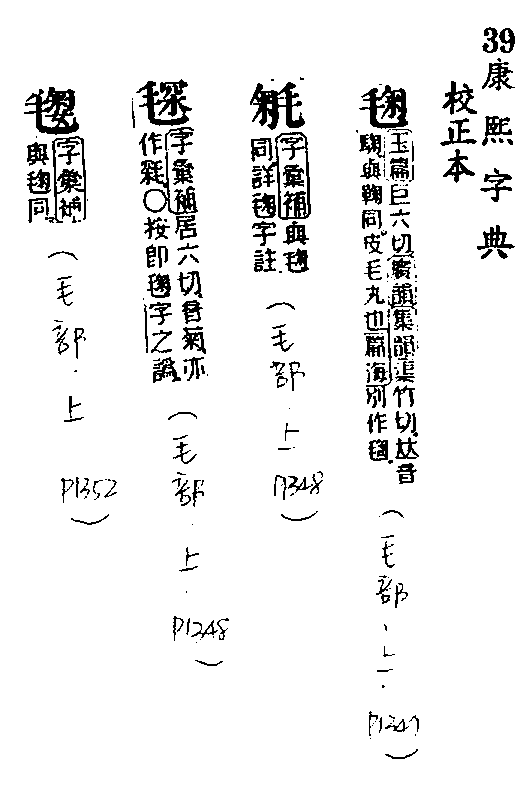 39
康熙字典
校正本
毱
玉篇巨六切廣韻集韻渠竹切𠀤音
與鞠同皮毛丸也篇海別作
(毛部.上.P1347)
字彙補與毱
同詳毱字註
(毛部.上P1348)
字彙補居六切音菊亦
作○按即毱字之譌
(毛部.上.P1248)
字彙補
與毱同
(毛部.上P1352)